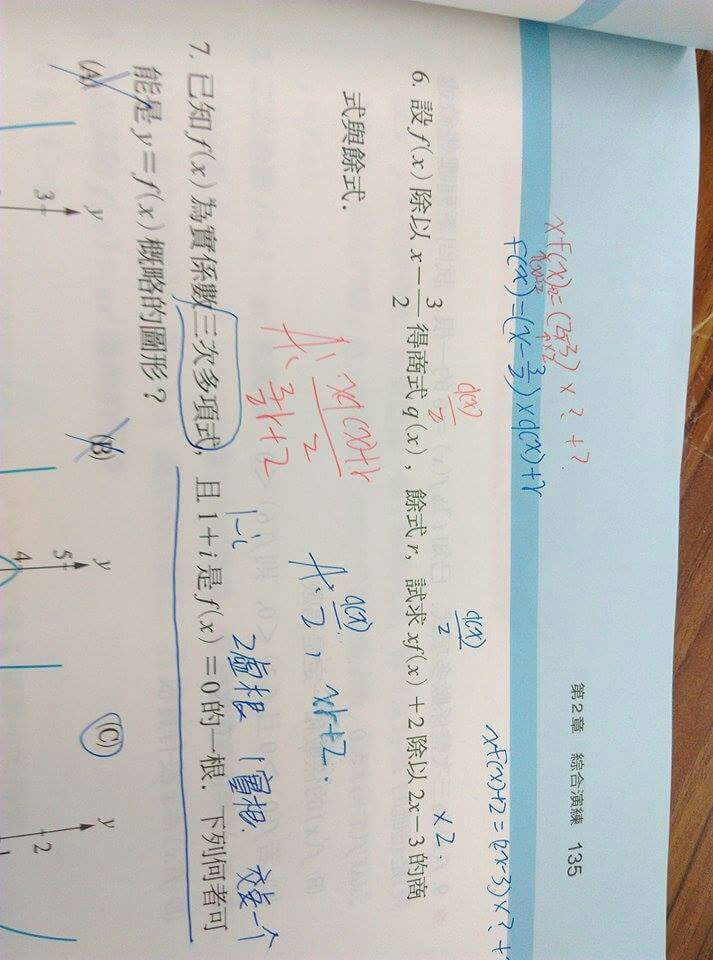 第2章 綜合演練 135
xf(x)+2=(2x-3)x?+
f(x)=(x-3/2)xq(x)+r
6. 設 f(x) 除以 x-3/2 得商式 q(x)，餘式 r，試求 xf(x)+2 除以 2x-3 的商
式與餘式．
q(x)/2
q(x)/2
x2.
A: xq(x)+r/2
3/2r+2
A: q(x)/2, xr+2.
1-i
2虛根 1實根. 交於一個
7. 已知 f(x) 為實係數三次多項式，且 1+i 是 f(x)=0 的一根．下列何者可
能是 y=f(x) 概略的圖形？
(A)
(B)
(C)
y
3
y
5
4
y
2